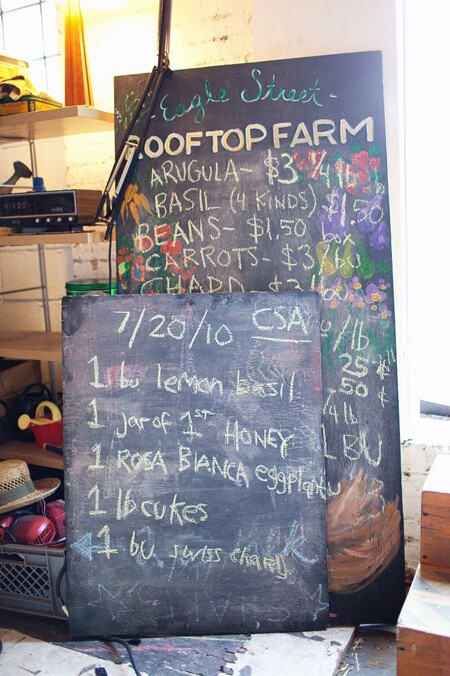 -Eagle Street-
ROOFTOP FARM
ARUGULA- $3 1/4 lb
BASIL (4 KINDS) $1.50
BEANS- $1.50 box
CARROTS- $3/bu
CHARD
bu
/lb
25¢
.50
1/4lb
BU
7/20/10 CSA
1 bu lemon basil
1 jar of 1ST HONEY
1 ROSA BIANCA eggplant
1 lb cukes
1 bu swiss chard